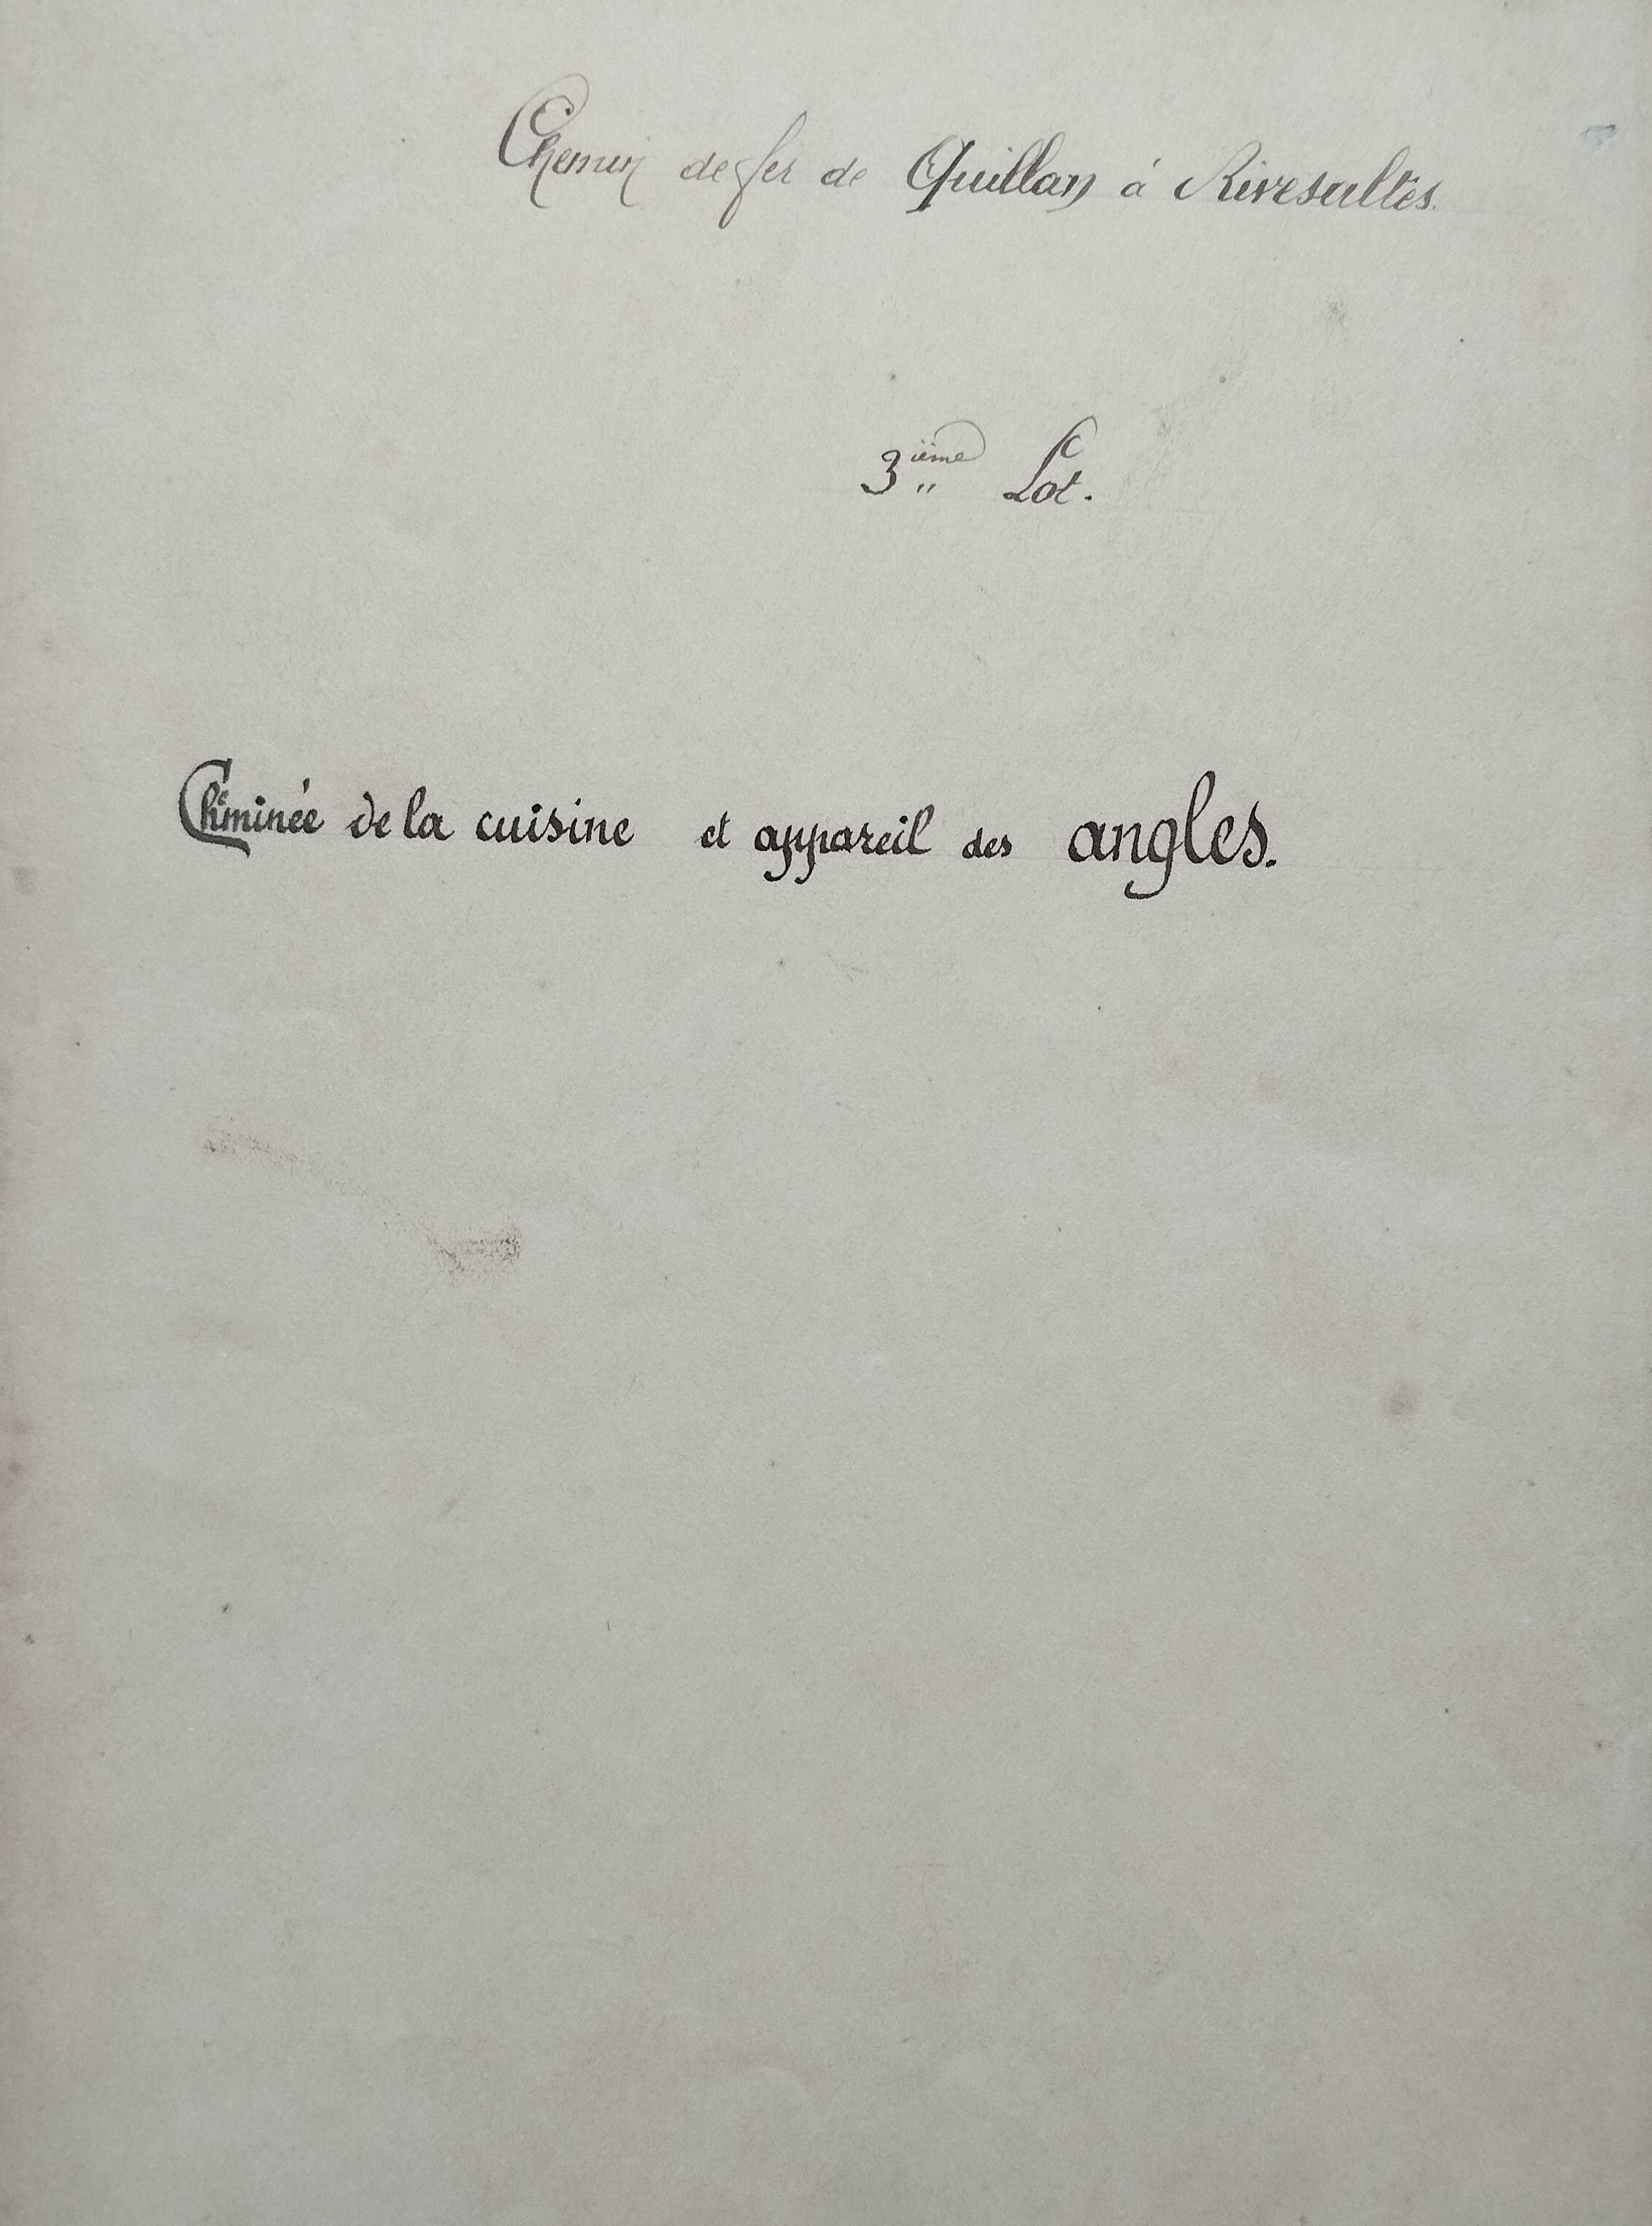 Chemin de fer de Quillan à Rivesaltes.
3ième Lot.
Cheminée de la cuisine et appareil des angles.